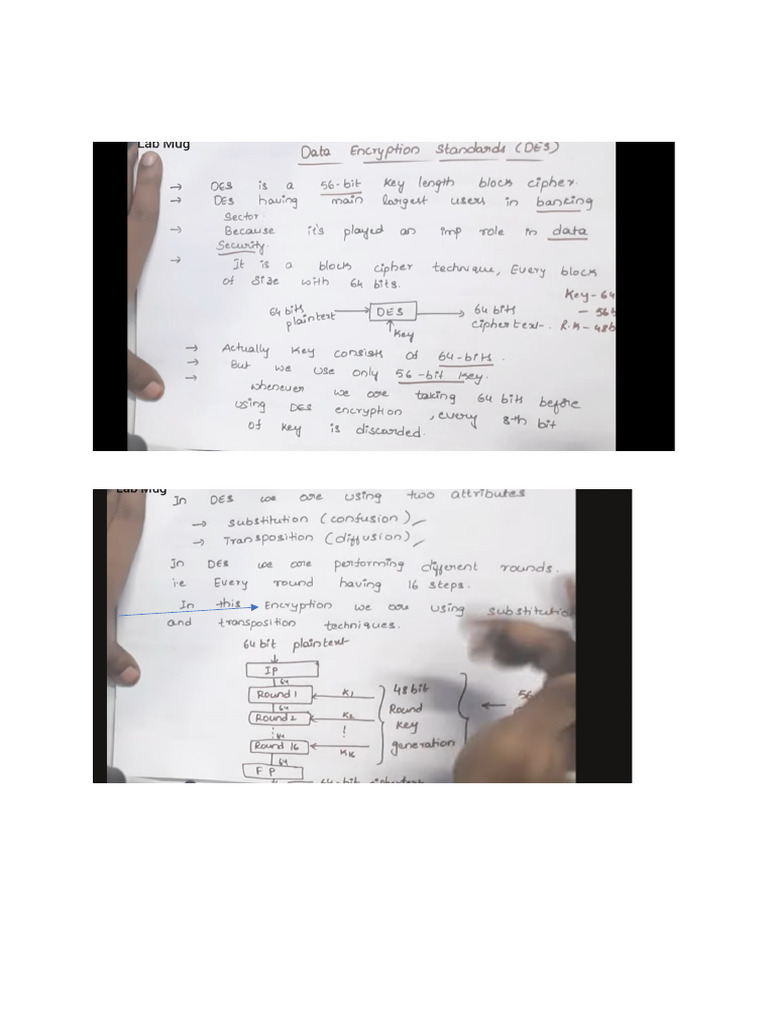 Lab Mug
Data Encryption Standards (DES)
→ DES is a 56-bit key length block cipher.
→ DES having main largest users in banking
sector.
→ Because it's played an imp role in data
security.
→ It is a block cipher technique, Every block
of size with 64 bits.
Key-64
64 bits
plaintext
DES
64 bits
ciphertext.
- 56b
R.K-48b
Key
→ Actually key consists of 64-bits.
→ But we use only 56-bit key.
→ whenever we are taking 64 bits before
using DES encryption, every 8th bit
of key is discarded.
Lab Mug
In DES we are using two attributes
→ substitution (confusion)
→ Transposition (diffusion)
In DES we are performing different rounds.
i.e Every round having 16 steps.
In this Encryption we are using substitution
and transposition techniques.
64 bit plaintext
IP
64
Round 1
K1
64
Round 2
K2
64
Round 16
K16
64
FP
48 bit
Round
key
generation
64-bit ciphertext